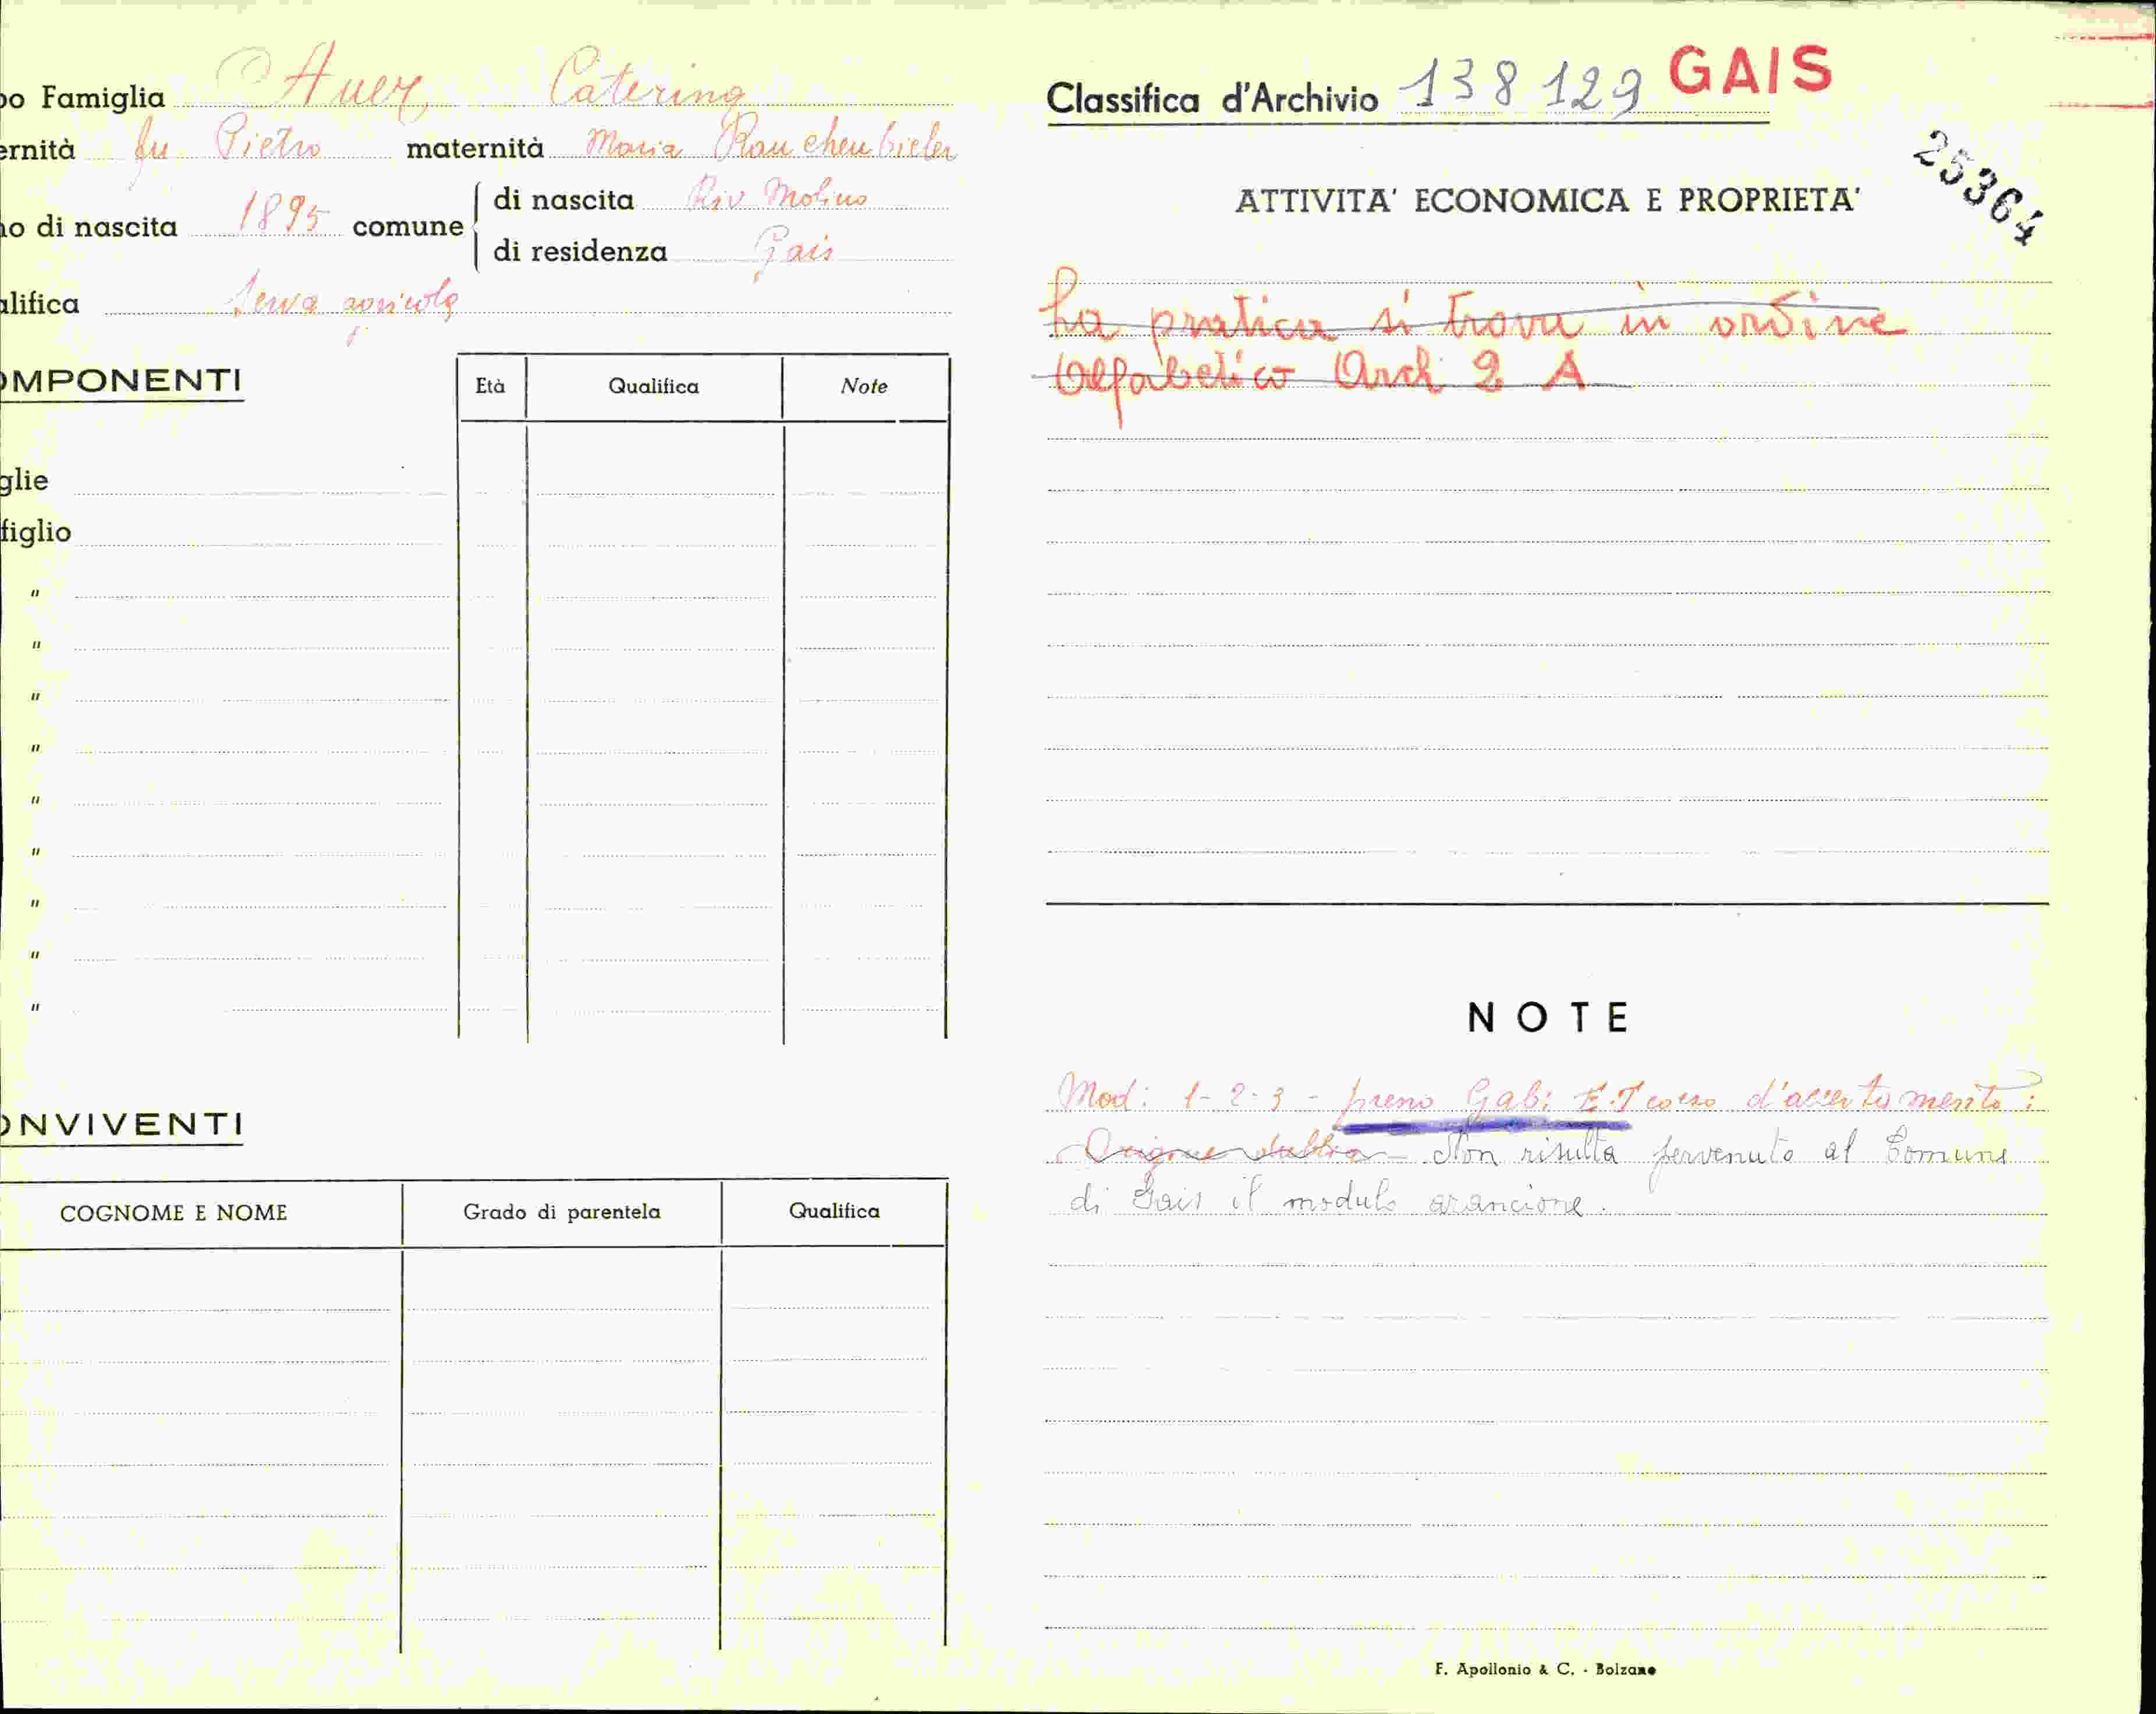 po Famiglia Auer, Caterina
ernità fu Pietro maternità Maria Rauchenbichler
no di nascita 1895 comune
di nascita Riv Molino
di residenza Gais
alifica Serva agricola
OMPONENTI
Età Qualifica Note
glie
figlio
"
"
"
"
"
"
"
"
"
ONVIVENTI
COGNOME E NOME Grado di parentela Qualifica
Classifica d'Archivio 138129 GAIS
25364
ATTIVITA' ECONOMICA E PROPRIETA'
La pratica si trova in ordine
alfabetico Arch 2 A
NOTE
Mod: 1-2-3 - preno Gab: E.T corso d'accertamento:
Origine dubbia - Non risulta pervenuto al Comune
di Gais il modulo arancione.
F. Apollonio & C. - Bolzano